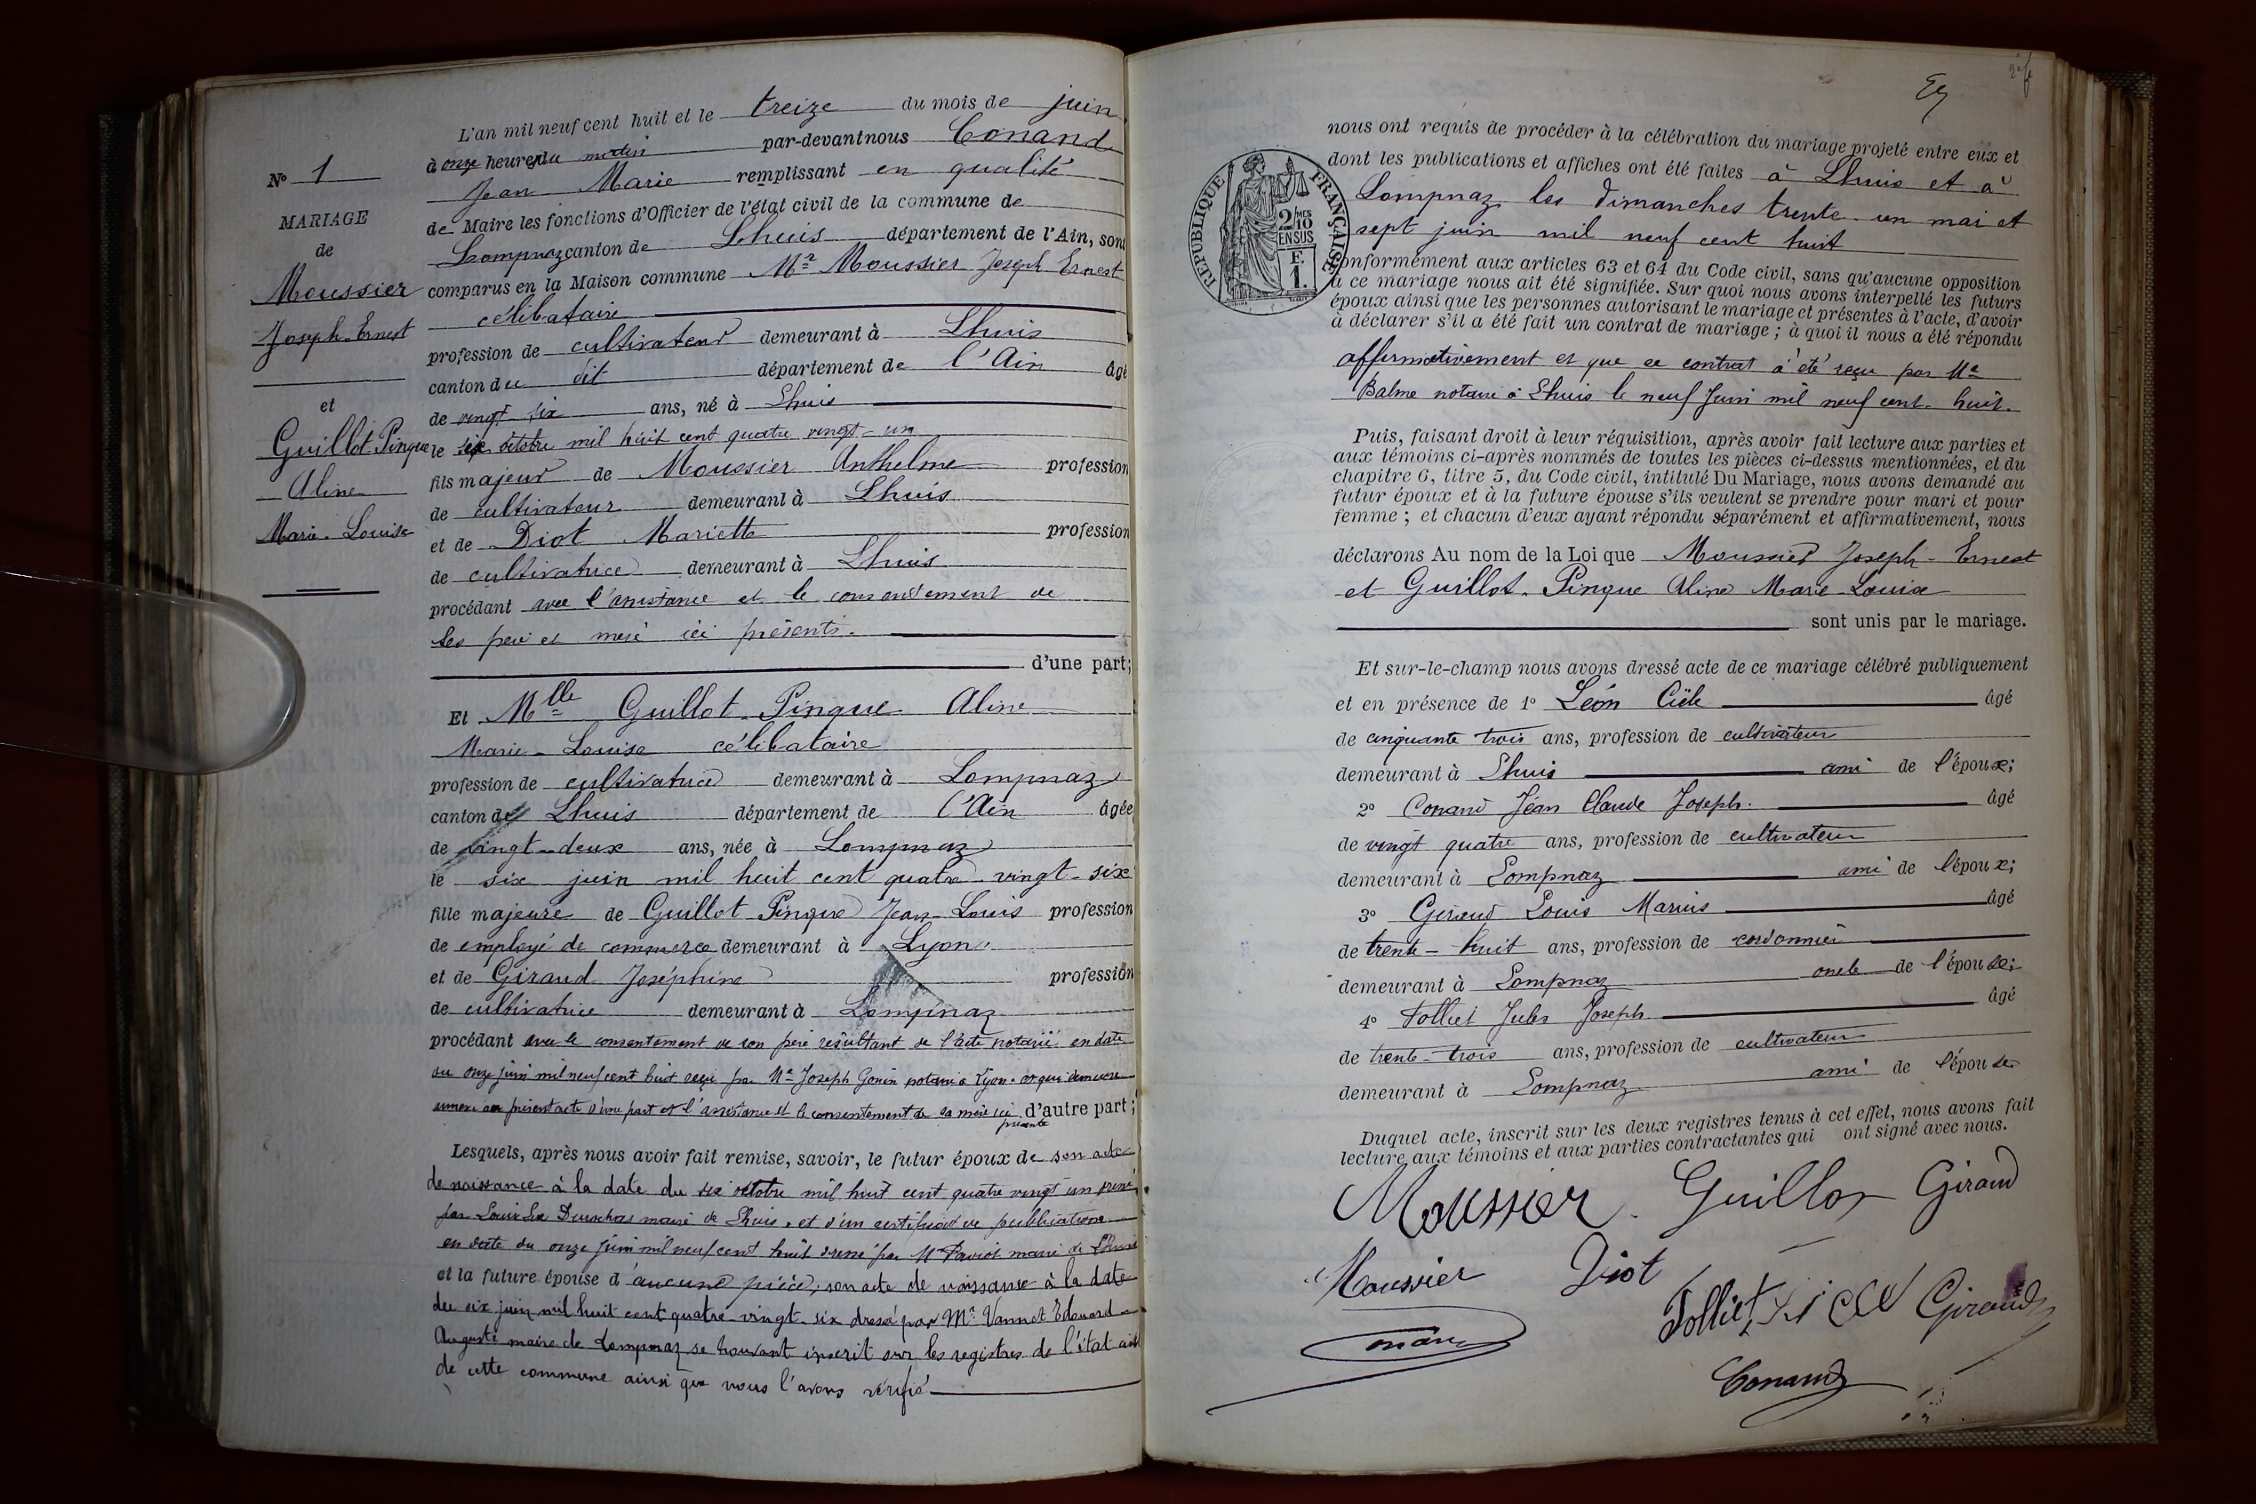 N° 1
MARIAGE
de
Moussier
Joseph-Ernest
et
Guillot-Pinque
Aline
Marie-Louise
L'an mil neuf cent huit et le treize du mois de juin
à onze heures du matin par-devant nous Conand
Jean Marie remplissant en qualité
de Maire les fonctions d'Officier de l'état civil de la commune de
Lompnaz canton de Lhuis département de l'Ain, sont
comparus en la Maison commune Mr Moussier Joseph Ernest
célibataire
profession de cultivateur demeurant à Lhuis
canton du dit département de l'Ain âgé
de vingt six ans, né à Lhuis
le six octobre mil huit cent quatre vingt-un
fils majeur de Moussier Anthelme profession
de cultivateur demeurant à Lhuis
et de Diot Mariette profession
de cultivatrice demeurant à Lhuis
procédant avec l'assistance et le consentement de
ses père et mère ici présents.
d'une part;
Et Mlle Guillot-Pinque Aline
Marie-Louise célibataire
profession de cultivatrice demeurant à Lompnaz
canton de Lhuis département de l'Ain âgée
de vingt-deux ans, née à Lompnaz
le six juin mil huit cent quatre-vingt-six
fille majeure de Guillot-Pinque Jean-Louis profession
de employé de commerce demeurant à Lyon
et de Giraud Joséphine profession
de cultivatrice demeurant à Lompnaz
procédant avec le consentement de son père résultant de l'acte notarié en date
du onze juin mil neuf cent huit reçu par Me Joseph Gonin notaire à Lyon et qui demeure
annexé au présent acte d'une part et l'assistance et le consentement de sa mère ici d'autre part;
présente
Lesquels, après nous avoir fait remise, savoir, le futur époux de son acte
de naissance à la date du six octobre mil huit cent quatre vingt un
par maire de Lhuis, et d'un certificat de publications
en date du onze juin mil neuf cent huit dressé par Mr maire de Lhuis
et la future épouse d'aucune pièce, son acte de naissance à la date
du six juin mil huit cent quatre-vingt-six dressé par Mr Vannot Edouard
Auguste maire de Lompnaz se trouvant inscrit sur les registres de l'état civil
de cette commune ainsi que nous l'avons vérifié
RÉPUBLIQUE FRANÇAISE
2/10
EN SUS
F.
1.
nous ont requis de procéder à la célébration du mariage projeté entre eux et
dont les publications et affiches ont été faites à Lhuis et à
Lompnaz les dimanches trente-un mai et
sept juin mil neuf cent huit
conformément aux articles 63 et 64 du Code civil, sans qu'aucune opposition
à ce mariage nous ait été signifiée. Sur quoi nous avons interpellé les futurs
époux ainsi que les personnes autorisant le mariage et présentes à l'acte, d'avoir
à déclarer s'il a été fait un contrat de mariage ; à quoi il nous a été répondu
affirmativement et que ce contrat a été reçu par Me
Balme notaire à Lhuis le neuf Juin mil neuf cent huit.
Puis, faisant droit à leur réquisition, après avoir fait lecture aux parties et
aux témoins ci-après nommés de toutes les pièces ci-dessus mentionnées, et du
chapitre 6, titre 5, du Code civil, intitulé Du Mariage, nous avons demandé au
futur époux et à la future épouse s'ils veulent se prendre pour mari et pour
femme ; et chacun d'eux ayant répondu séparément et affirmativement, nous
déclarons Au nom de la Loi que Moussier Joseph-Ernest
et Guillot-Pinque Aline Marie-Louise
sont unis par le mariage.
Et sur-le-champ nous avons dressé acte de ce mariage célébré publiquement
et en présence de 1° Léon âgé
de cinquante trois ans, profession de cultivateur
demeurant à Lhuis ami de l'époux;
2° Conand Jean Claude Joseph. âgé
de vingt quatre ans, profession de cultivateur
demeurant à Lompnaz ami de l'époux;
3° Giraud Louis Marius âgé
de trente-huit ans, profession de cordonnier
demeurant à Lompnaz oncle de l'épouse;
4° Tolliet Jules Joseph âgé
de trente-trois ans, profession de cultivateur
demeurant à Lompnaz ami de l'épouse
Duquel acte, inscrit sur les deux registres tenus à cet effet, nous avons fait
lecture aux témoins et aux parties contractantes qui ont signé avec nous.
Moussier Guillot Giraud
Moussier Diot
Tolliet Giraud
Conand